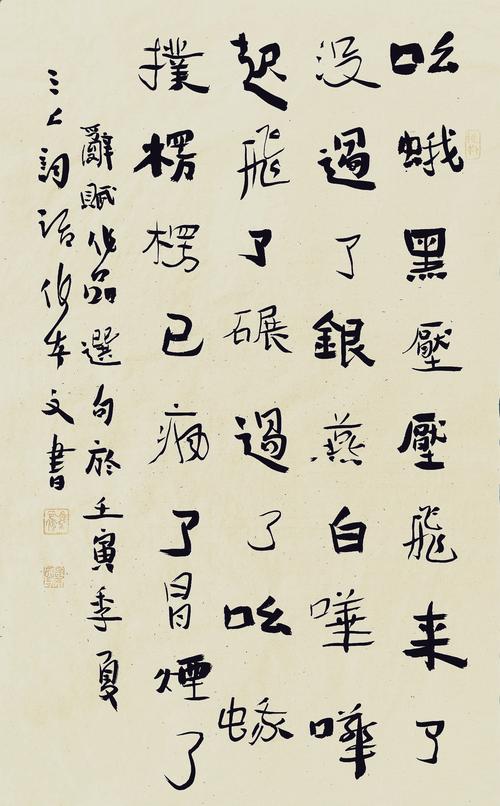 吆蛾黑壓壓飛来了
没過了銀燕白嘩嘩
起飛了碾過了吆
撲楞楞已了冒煙了
辭賦作品選句於壬寅季夏
詞話作文書